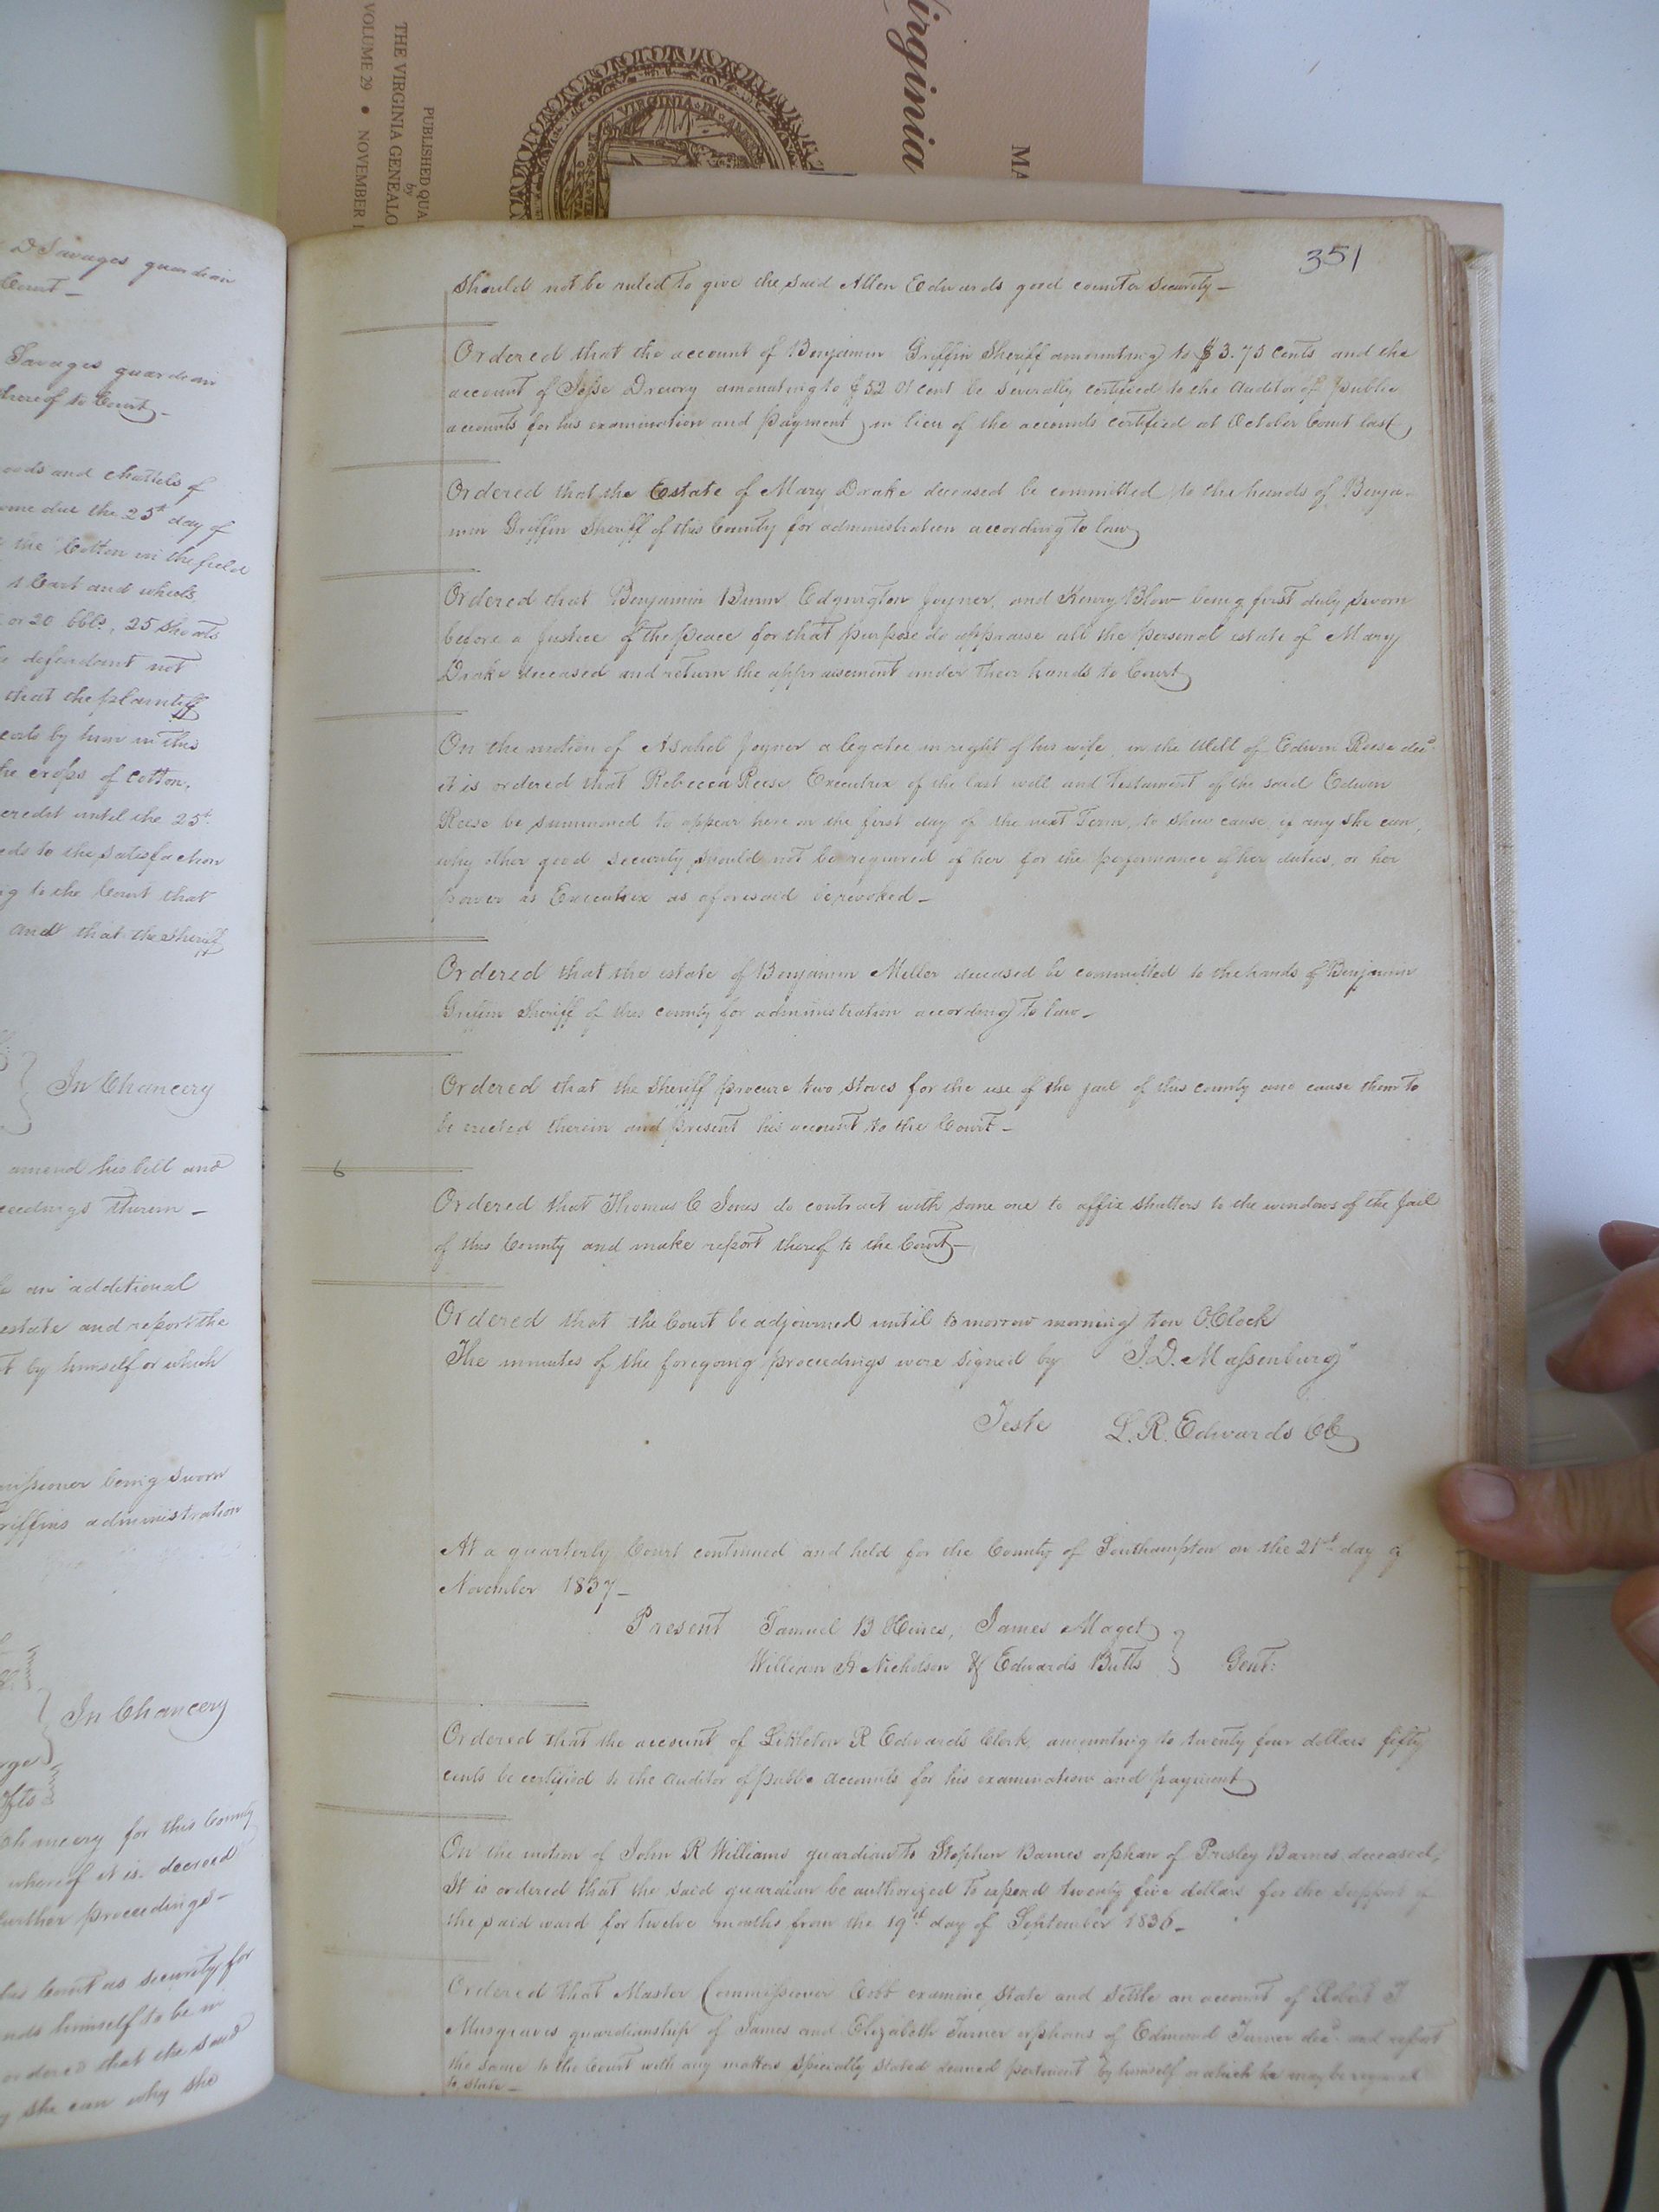 Virginia
MA
PUBLISHED QUA
by
THE VIRGINIA GENEALO
VOLUME 29 • NOVEMBER
VIRGINIA IN
D Savages guardian
Court –
Savages guardian
thereof to Court –
oods and chattels of
ome due the 25th day of
the Cotton in the field
1 Cart and wheels
or 20 bbls, 25 shoats
defendant not
that the plaintiff
costs by him in this
he crops of cotton,
credit until the 25th
eds to the satisfaction
ng to the Court that
and that the Sheriff
In Chancery
amend his bill and
ceedings therein –
an additional
estate and report the
by himself or which
missioner being sworn
riffins administration
In Chancery
chancery for this County
whereof it is decreed
further proceedings –
his Court as security for
nds himself to be in
ordered that the said
she can why she
351
should not be ruled to give the said Allen Edwards good counter security –
Ordered that the account of Benjamin Griffin Sheriff amounting to $3.75 cents and the
account of Jesse Drewry amounting to $52 01 cent be severally certified to the Auditor of public
accounts for his examination and payment, in lieu of the accounts certified at October Court last,
Ordered that the Estate of Mary Drake deceased be committed to the hands of Benja-
min Griffin Sheriff of this County for administration according to law
Ordered that Benjamin Dunn Edgington Joyner, and Henry Blow being first duly sworn
before a Justice of the peace for that purpose do appraise all the personal estate of Mary
Drake deceased and return the appraisement under their hands to Court
On the motion of Asahel Joyner a legatee in right of his wife, in the Will of Edwin Reese decd
it is ordered that Rebecca Reese Executrix of the last will and Testament of the said Edwin
Reese be summoned to appear here on the first day of the next Term, to shew cause if any she can,
why other good security should not be required of her for the performance of her duties, or her
power as Executrix as aforesaid be revoked –
Ordered that the estate of Benjamin Miller deceased be committed to the hands of Benjamin
Griffin Sheriff of this county for administration according to law –
Ordered that the Sheriff procure two stoves for the use of the jail of this county and cause them to
be erected therein and present his account to the Court –
6
Ordered that Thomas C Jones do contract with some one to affix shutters to the windows of the Jail
of this County and make report thereof to the Court –
Ordered that the Court be adjourned until tomorrow morning ten OClock
The minutes of the foregoing proceedings were signed by "J. D. Massenburg"
Teste L. R. Edwards CC
At a quarterly Court continued and held for the County of Southampton on the 21st day of
November 1837 –
Present Samuel B Hines, James Maget
William A Nicholson & Edwards Butts } Gent:
Ordered that the account of Littleton R Edwards Clerk, amounting to twenty four dollars fifty
cents be certified to the Auditor of public accounts for his examination and payment
On the motion of John R Williams guardian to Stephen Barnes orphan of Presley Barnes deceased,
It is ordered that the said guardian be authorized to expend twenty five dollars for the support of
the said ward for twelve months from the 19th day of September 1836 –
Ordered that Master Commissioner Cobb examine, state and settle an account of Robert T
Musgraves guardianship of James and Elizabeth Turner orphans of Edmond Turner decd and report
the same to the Court with any matters specially stated deemed pertinent by himself or which he may be required
to state –